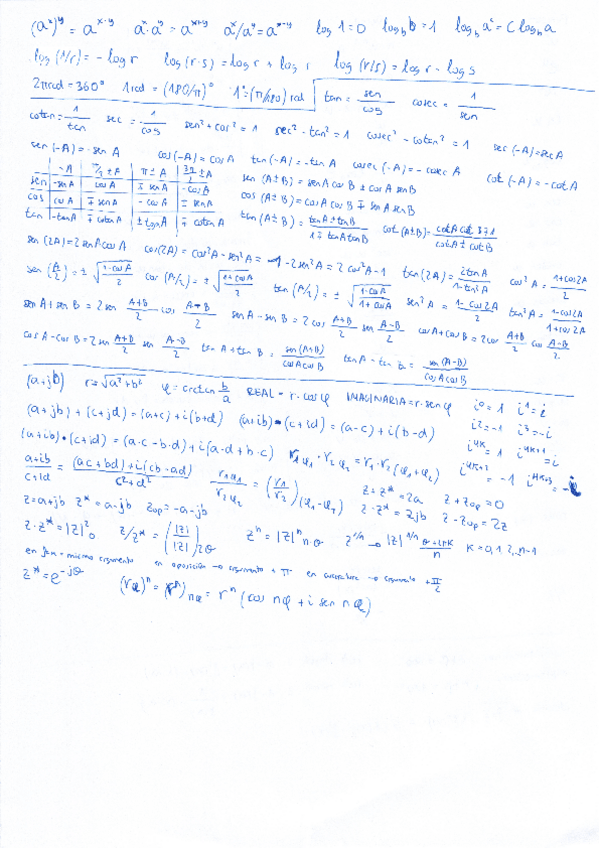 (a^x)^y = a^x·y   a^x · a^y = a^x+y   a^x/a^y = a^x-y   log 1 = 0   log_b b = 1   log_b a^c = C log_b a
log (1/r) = - log r   log (r·s) = log r + log s   log (r/s) = log r - log s
2π rad = 360°   1 rad = (180/π)°   1° = (π/180) rad   tan = sen/cos   cosec = 1/sen
cotan = 1/tan   sec = 1/cos   sen² + cos² = 1   sec² - tan² = 1   cosec² - cotan² = 1   sec (-A) = sec A
sen (-A) = - sen A   cos (-A) = cos A   tan (-A) = - tan A   cosec (-A) = - cosec A   cot (-A) = - cot A
-A   π/2 ± A   π ± A   3π/2 ± A
sen   -sen A   cos A   ∓ sen A   -cos A   sen (A±B) = sen A cos B ± cos A sen B
cos   cos A   ∓ sen A   - cos A   ± sen A   cos (A±B) = cos A cos B ∓ sen A sen B
tan   -tan A   ∓ cotan A   ± tan A   ∓ cotan A   tan (A±B) = tan A ± tan B / 1 ∓ tan A tan B   cot (A±B) = cot A cot B ∓ 1 / cot A ± cot B
sen (2A) = 2 sen A cos A   cos (2A) = cos² A - sen² A = 1 - 2 sen² A = 2 cos² A - 1   tan (2A) = 2 tan A / 1 - tan² A   cos² A = 1 + cos 2A / 2
sen (A/2) = ± √(1 - cos A / 2)   cos (A/2) = ± √(1 + cos A / 2)   tan (A/2) = ± √(1 - cos A / 1 + cos A)   sen² A = 1 - cos 2A / 2   tan² A = 1 - cos 2A / 1 + cos 2A
sen A + sen B = 2 sen A+B/2 cos A-B/2   sen A - sen B = 2 cos A+B/2 sen A-B/2   cos A + cos B = 2 cos A+B/2 cos A-B/2
cos A - cos B = 2 sen A+B/2 sen A-B/2   tan A + tan B = sen (A+B) / cos A cos B   tan A - tan B = sen (A-B) / cos A cos B
(a+jb)   r = √a² + b²   φ = arctan b/a   REAL = r · cos φ   IMAGINARIA = r · sen φ   i^0 = 1   i^1 = i
(a+jb) + (c+jd) = (a+c) + i(b+d)   (a+ib) - (c+id) = (a-c) + i(b-d)   i^2 = -1   i^3 = -i
(a+ib) · (c+id) = (a·c - b·d) + i(a·d + b·c)   r1φ1 · r2φ2 = r1 · r2 (φ1 + φ2)   i^4K = 1   i^4K+1 = i
a+ib / c+id = (ac+bd) + i(cb-ad) / c² + d²   r1φ1 / r2φ2 = (r1/r2)(φ1-φ2)   z + z* = 2a   z + zop = 0   i^4K+2 = -1   i^4K+3 = -i
z = a+jb   z* = a-jb   zop = -a-jb   z - z* = 2jb   z - zop = 2z
z · z* = |z|²0   z/z* = (|z|/|z|)2θ   z^n = |z|^n n·θ   z^1/n → |z|^1/n θ+2πK/n   K = 0,1,2..n-1
en fase = mismo argumento   en oposición → argumento + π   en cuadratura → argumento + π/2
z* = e^-jθ   (rφ)^n = (r^n)nφ = r^n (cos nφ + i sen nφ)